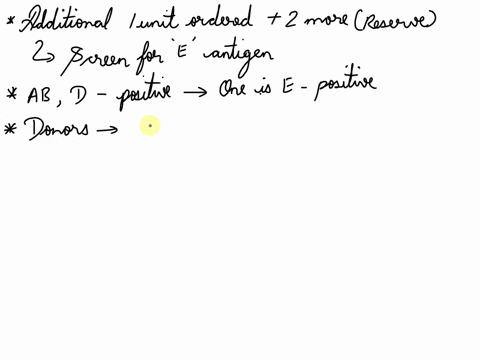 * Additional 1 unit ordered + 2 more (Reserve)
↳ Screen for 'E' antigen
* AB, D - positive → One is E - positive
* Donors →